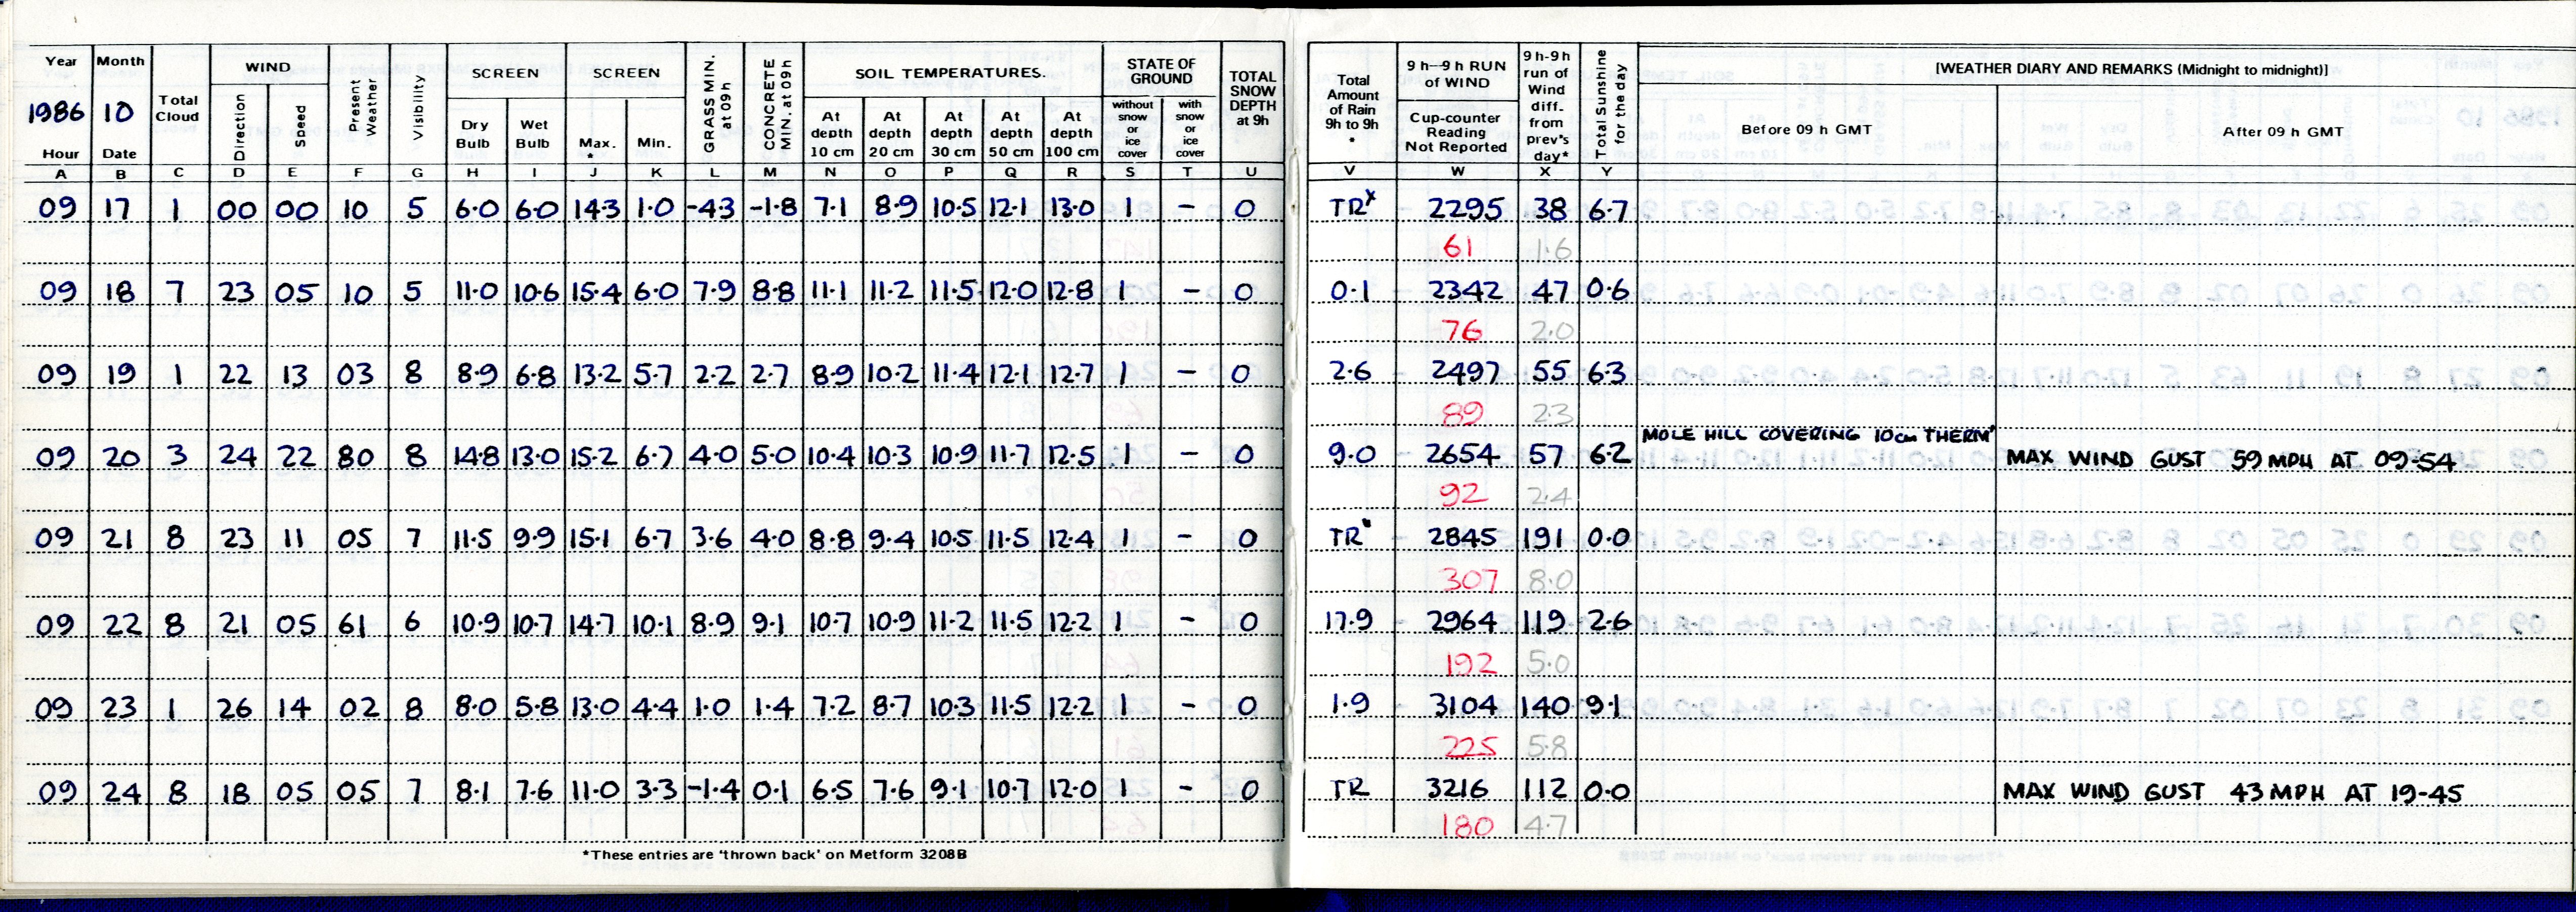 Year Month Total Cloud WIND Present Weather Visibility SCREEN SCREEN GRASS MIN. at 09h CONCRETE MIN. at 09h SOIL TEMPERATURES. STATE OF GROUND TOTAL SNOW DEPTH at 9h Total Amount of Rain 9h to 9h * 9 h–9 h RUN of WIND 9 h-9 h run of Wind diff. from prev's day* Total Sunshine for the day [WEATHER DIARY AND REMARKS (Midnight to midnight)]
1986 10 Direction Speed Dry Bulb Wet Bulb Max. * Min. At depth 10 cm At depth 20 cm At depth 30 cm At depth 50 cm At depth 100 cm without snow or ice cover with snow or ice cover Cup-counter Reading Not Reported Before 09 h GMT After 09 h GMT
Hour Date
A B C D E F G H I J K L M N O P Q R S T U V W X Y
09 17 1 00 00 10 5 6.0 6.0 14.3 1.0 -4.3 -1.8 7.1 8.9 10.5 12.1 13.0 1 – 0 TRx 2295 38 6.7
61 1.6
09 18 7 23 05 10 5 11.0 10.6 15.4 6.0 7.9 8.8 11.1 11.2 11.5 12.0 12.8 1 – 0 0.1 2342 47 0.6
76 2.0
09 19 1 22 13 03 8 8.9 6.8 13.2 5.7 2.2 2.7 8.9 10.2 11.4 12.1 12.7 1 – 0 2.6 2497 55 6.3
89 2.3
MOLE HILL COVERING 10cm THERM'
09 20 3 24 22 80 8 14.8 13.0 15.2 6.7 4.0 5.0 10.4 10.3 10.9 11.7 12.5 1 – 0 9.0 2654 57 6.2 MAX WIND GUST 59 MPH AT 09-54
92 2.4
09 21 8 23 11 05 7 11.5 9.9 15.1 6.7 3.6 4.0 8.8 9.4 10.5 11.5 12.4 1 – 0 TR 2845 191 0.0
307 8.0
09 22 8 21 05 61 6 10.9 10.7 14.7 10.1 8.9 9.1 10.7 10.9 11.2 11.5 12.2 1 – 0 17.9 2964 119 2.6
192 5.0
09 23 1 26 14 02 8 8.0 5.8 13.0 4.4 1.0 1.4 7.2 8.7 10.3 11.5 12.2 1 – 0 1.9 3104 140 9.1
225 5.8
09 24 8 18 05 05 7 8.1 7.6 11.0 3.3 -1.4 0.1 6.5 7.6 9.1 10.7 12.0 1 – 0 TR 3216 112 0.0 MAX WIND GUST 43 MPH AT 19-45
180 4.7
*These entries are 'thrown back' on Metform 3208B